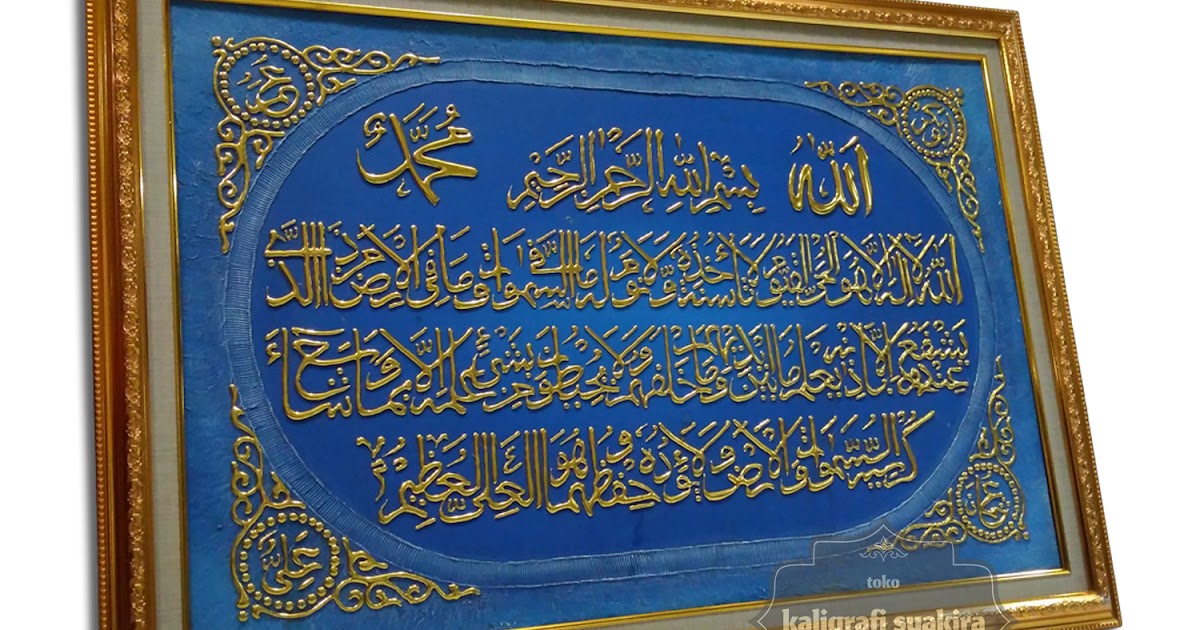 عمر
ابو بكر
الله
بسم الله الرحمن الرحيم
محمد
الله لا اله الا هو الحي القيوم لا تأخذه سنة ولا نوم له ما في السموات وما في الارض من ذا الذي
يشفع عنده الا باذنه يعلم ما بين ايديهم وما خلفهم ولا يحيطون بشيء من علمه الا بما شاء وسع
كرسيه السموات والارض ولا يؤده حفظهما وهو العلي العظيم
علي
عثمان
toko
kaligrafi suakira